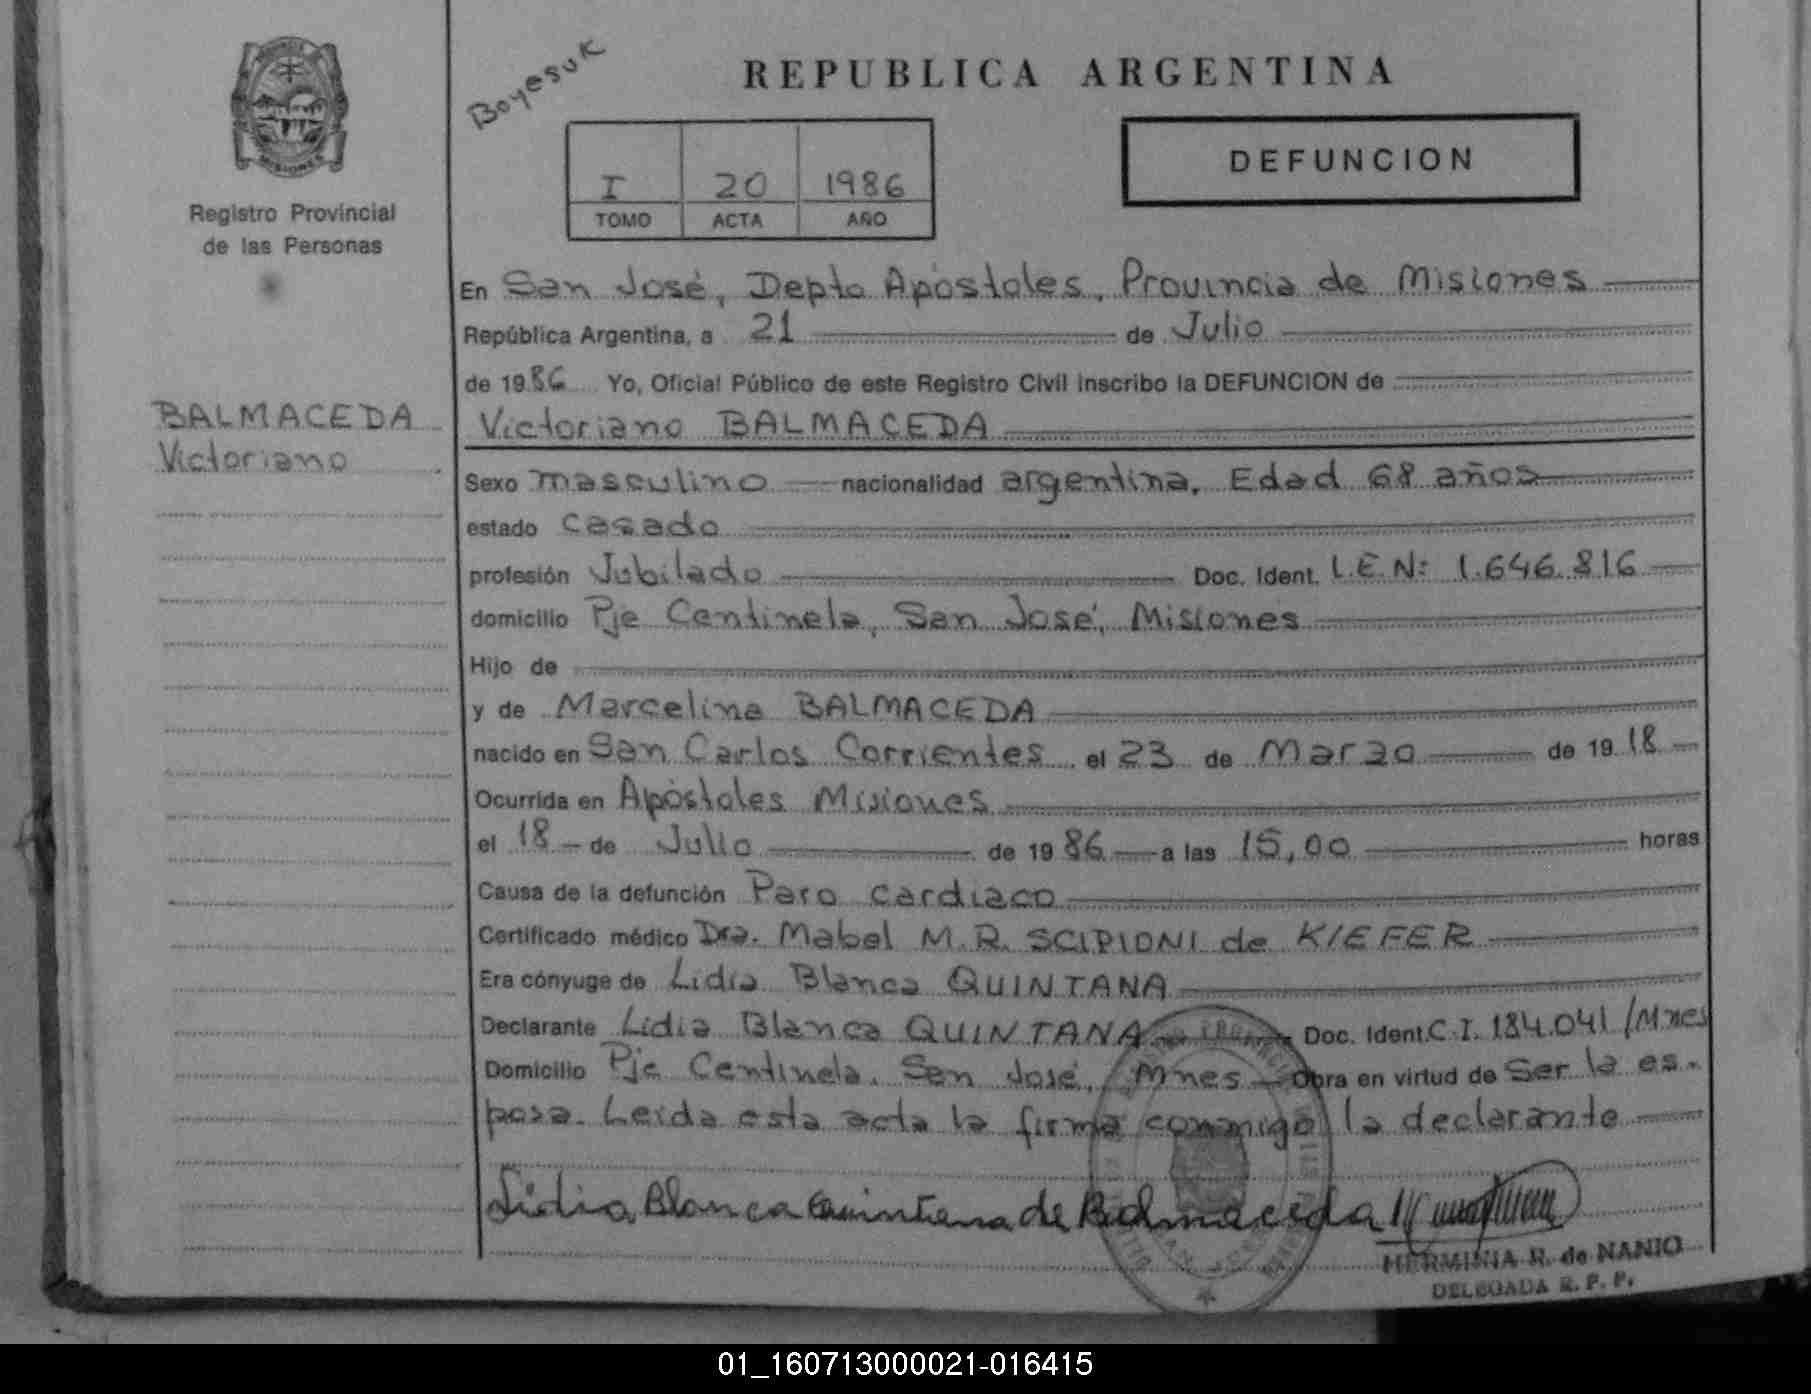 MISIONES
Registro Provincial
de las Personas
BALMACEDA
Victoriano
Boyesuk
REPUBLICA ARGENTINA
I 20 1986
TOMO ACTA AÑO
DEFUNCION
En San José, Depto Apóstoles, Provincia de Misiones
República Argentina, a 21 de Julio
de 1986 Yo, Oficial Público de este Registro Civil inscribo la DEFUNCION de
Victoriano BALMACEDA
Sexo masculino nacionalidad argentina. Edad 68 años
estado casado
profesión Jubilado Doc. Ident. L.E.N: 1.646.816
domicilio Pje Centinela, San José, Misiones
Hijo de
y de Marcelina BALMACEDA
nacido en San Carlos Corrientes el 23 de Marzo de 1918
Ocurrida en Apóstoles Misiones
el 18 de Julio de 1986 a las 15,00 horas
Causa de la defunción Paro cardiaco
Certificado médico Dra. Mabel M.R. SCIPIONI de KIEFER
Era cónyuge de Lidia Blanca QUINTANA
Declarante Lidia Blanca QUINTANA Doc. Ident. C.I. 184.041/Mnes
Domicilio Pje Centinela. San José, Mnes Obra en virtud de Ser la es-
posa. Leida esta acta la firma conmigo la declarante
Lidia Blanca Quintana de Balmaceda
HERMINIA R. de NANIO
DELEGADA R. P. P.
01_160713000021-016415